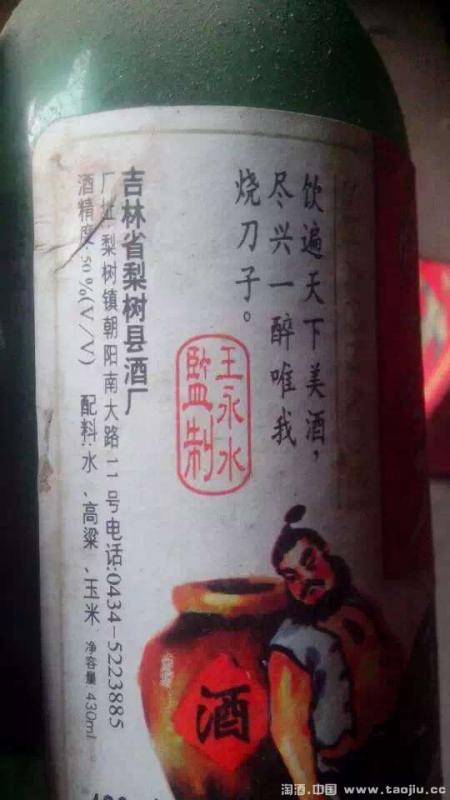 饮遍天下美酒，
尽兴一醉唯我
烧刀子。
王永水
監制
吉林省梨树县酒厂
厂址:梨树镇朝阳南大路11号电话:0434-5223885
酒精度:50%(V/V) 配料:水、高粱、玉米 净容量:430ml
酒
淘酒.中国 www.taojiu.cc